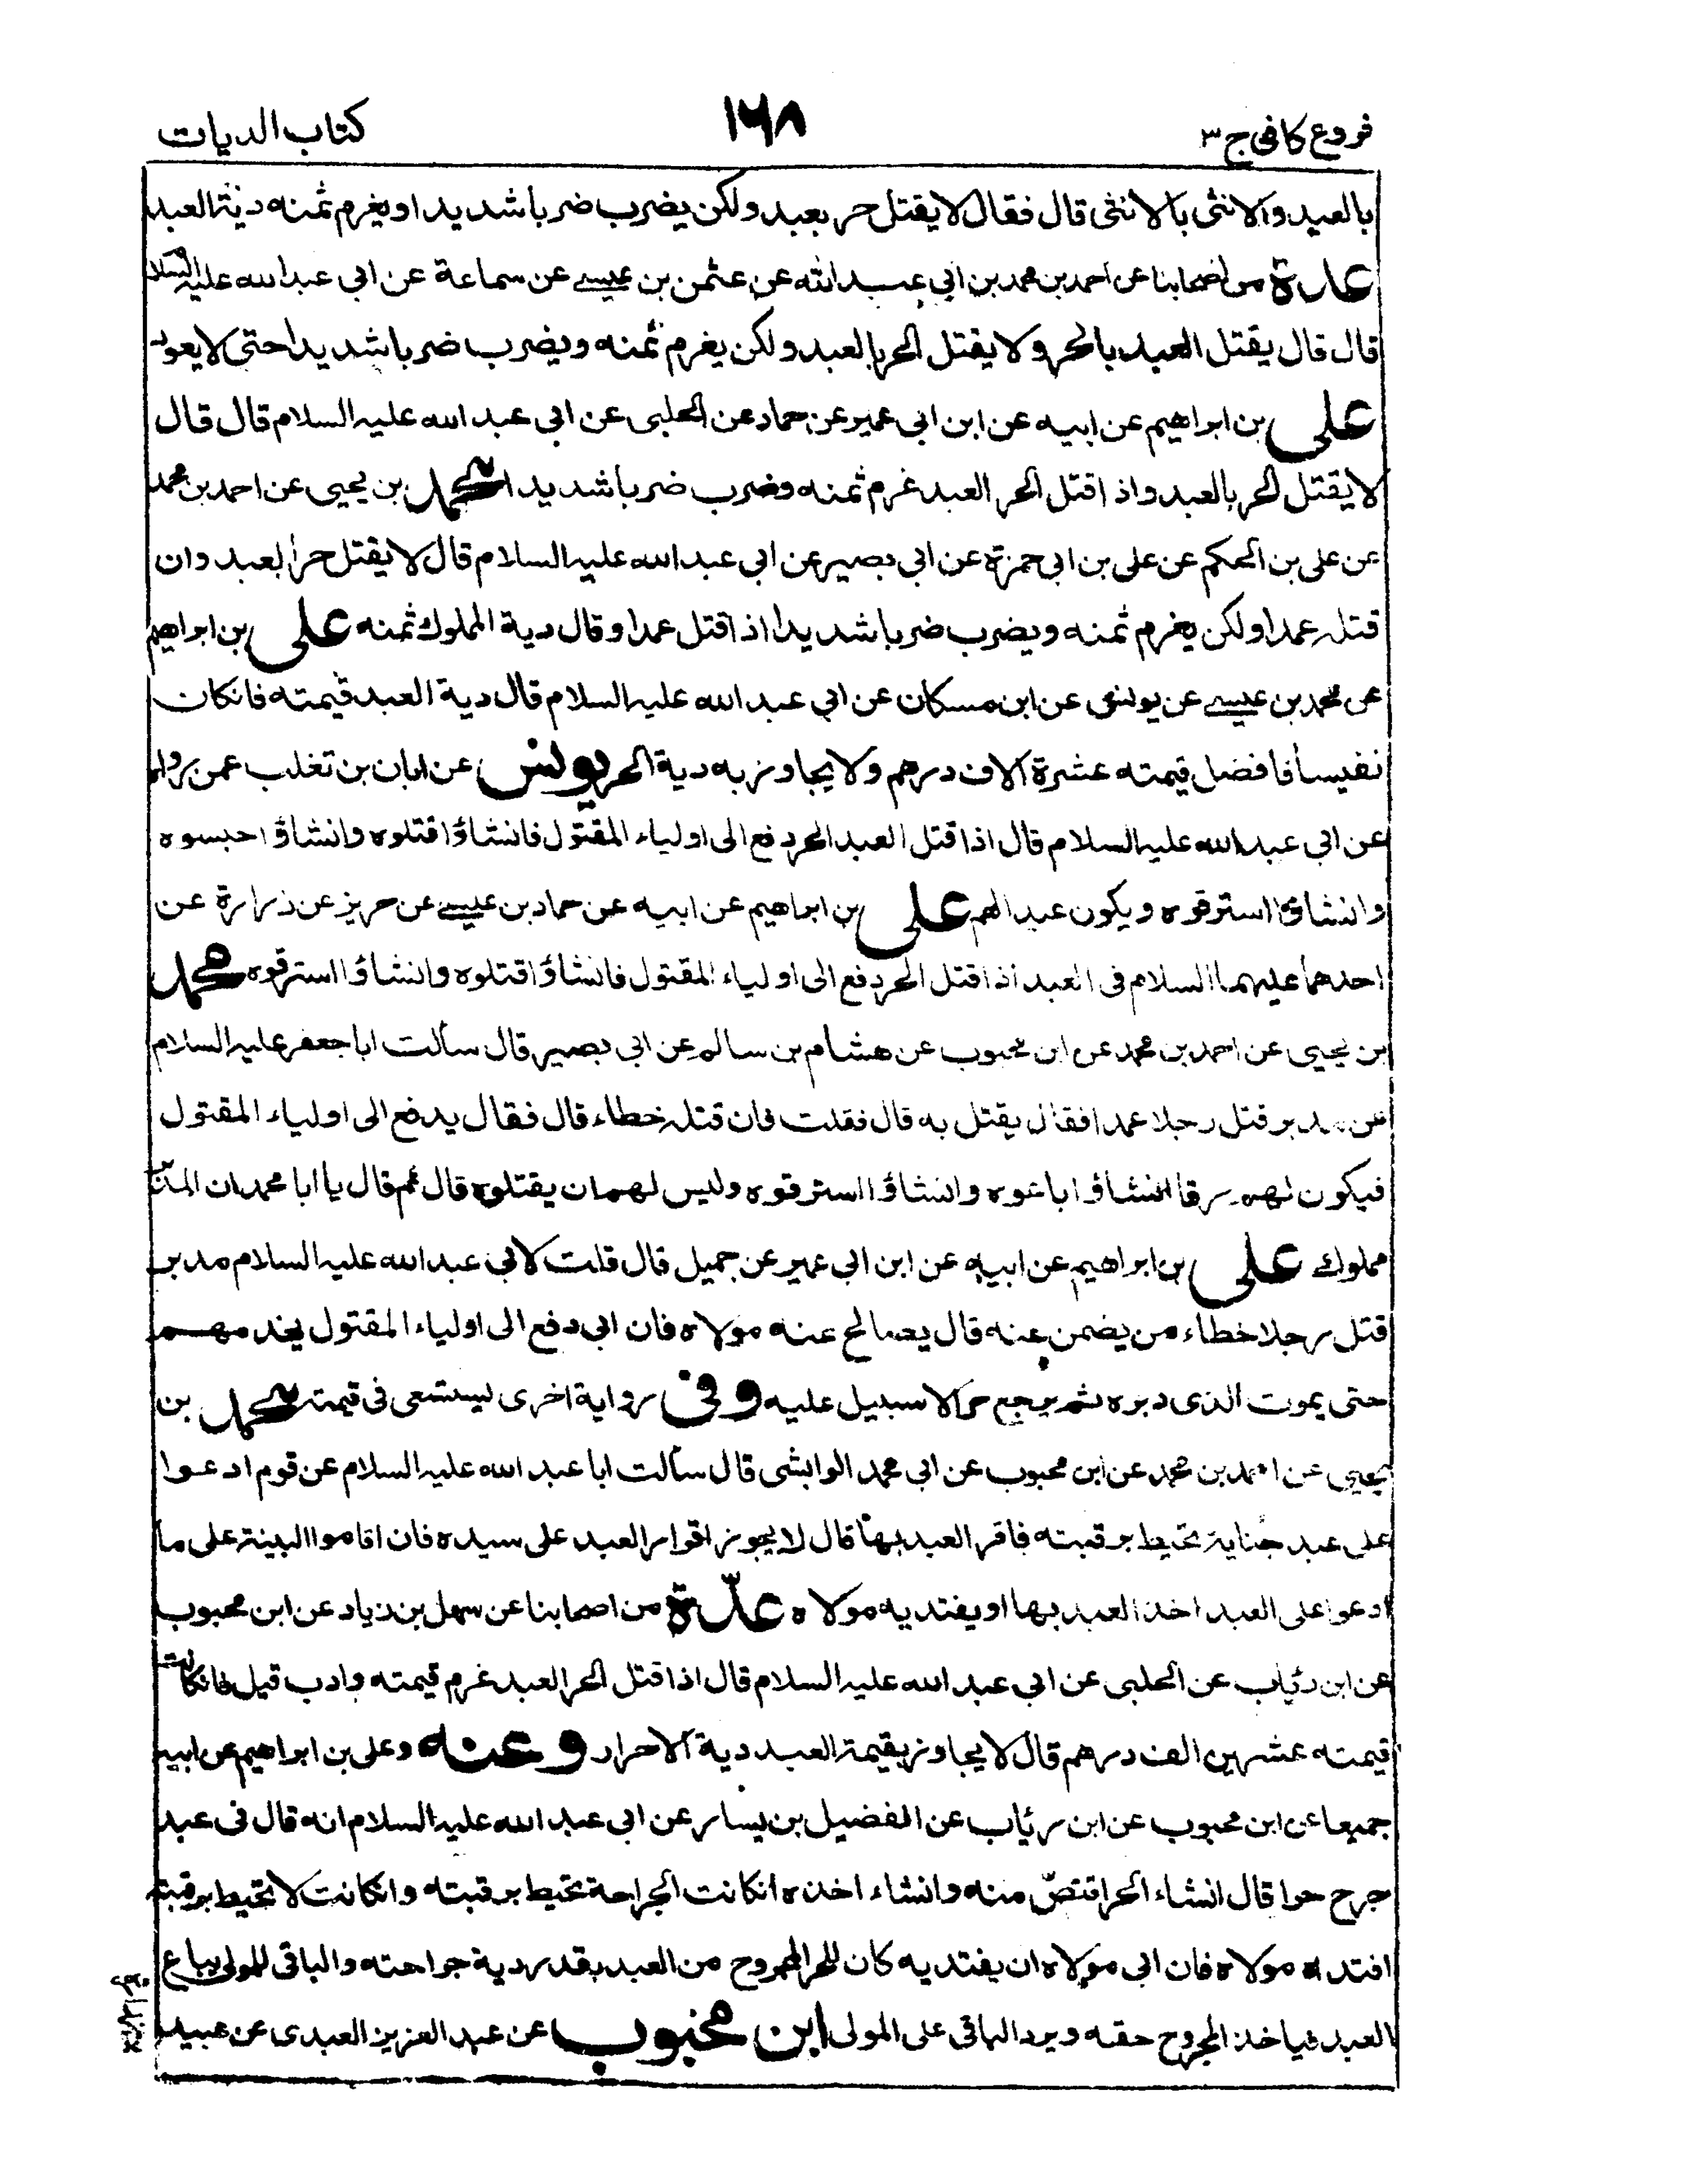 فروع كافى ج ٣
١٦٨
كتاب الديات
بالعبد والانثى بالانثى قال فقال لا يقتل حر بعبد ولكن يضرب ضربا شديدا ويغرم ثمنه دية العبد
عدة من اصحابنا عن احمد بن محمد بن ابي عبد الله عن عثمن بن عيسى عن سماعة عن ابي عبد الله عليه السلا
قال قال يقتل العبد بالحر ولا يقتل الحر بالعبد ولكن يغرم ثمنه ويضرب ضربا شديدا حتى لا يعود
على بن ابراهيم عن ابيه عن ابن ابي عمير عن حماد عن الحلبى عن ابي عبد الله عليه السلام قال قال
لا يقتل الحر بالعبد واذا قتل الحر العبد غرم ثمنه وضرب ضربا شديدا محمد بن يحيى عن احمد بن محمد
عن على بن الحكم عن على بن ابي حمزة عن ابي بصير عن ابي عبد الله عليه السلام قال لا يقتل حرا بعبد وان
قتله عمدا ولكن يغرم ثمنه ويضرب ضربا شديدا اذا قتل عمدا وقال دية المملوك ثمنه على بن ابراهيم
عن محمد بن عيسى عن يونس عن ابن مسكان عن ابي عبد الله عليه السلام قال دية العبد قيمته فانكان
نفيسا فافضل قيمته عشرة الاف درهم ولا يجاوز به دية الحر يونس عن ابان بن تغلب عمن رواه
عن ابي عبد الله عليه السلام قال اذا قتل العبد الحر دفع الى اولياء المقتول فانشاؤا قتلوه وانشاؤا حبسوه
وانشاؤا استرقوه ويكون عبدا لهم على بن ابراهيم عن ابيه عن حماد بن عيسى عن حريز عن زرارة عن
احدهما عليهما السلام فى العبد اذا قتل الحر دفع الى اولياء المقتول فانشاؤا قتلوه وانشاؤا استرقوه محمد
بن يحيى عن احمد بن محمد عن ابن محبوب عن هشام بن سالم عن ابي بصير قال سألت ابا جعفر عليه السلام
عن مدبر قتل رجلا عمدا فقال يقتل به قال فقلت فان قتله خطاء قال فقال يدفع الى اولياء المقتول
فيكون لهم رقا انشاؤا باعوه وانشاؤا استرقوه وليس لهم ان يقتلوه قال ثم قال يا ابا محمد ان المدبر
مملوك على بن ابراهيم عن ابيه عن ابن ابي عمير عن جميل قال قلت لابي عبد الله عليه السلام مدبر
قتل رجلا خطاء من يضمن عنه قال يصالح عنه مولاه فان ابى دفع الى اولياء المقتول يخدمهم
حتى يموت الذى دبره ثم يرجع حرا لا سبيل عليه وفى رواية اخرى يستسعى فى قيمته محمد بن
يحيى عن احمد بن محمد عن ابن محبوب عن ابي محمد الوابشى قال سألت ابا عبد الله عليه السلام عن قوم ادعوا
على عبد جناية تحيط برقبته فاقر العبد بها قال لا يجوز اقرار العبد على سيده فان اقاموا البينة على ما
ادعوا على العبد اخذ العبد بها او يفتديه مولاه عدّة من اصحابنا عن سهل بن زياد عن ابن محبوب
عن ابن رئاب عن الحلبى عن ابي عبد الله عليه السلام قال اذا قتل الحر العبد غرم قيمته وادب قيل فانكانت
قيمته عشرين الف درهم قال لا يجاوز بقيمة العبد دية الاحرار وعنه وعلى بن ابراهيم عن ابيه
جميعا عن ابن محبوب عن ابن رئاب عن الفضيل بن يسار عن ابي عبد الله عليه السلام انه قال فى عبد
جرح حرا قال انشاء الحر اقتصّ منه وانشاء اخذه انكانت الجراحة تحيط برقبته وانكانت لا تحيط برقبته
افتداه مولاه فان ابى مولاه ان يفتديه كان للحر المجروح من العبد بقدر دية جراحته والباقى للمولى يباع
العبد فياخذ المجروح حقه ويرد الباقى على المولى ابن محبوب عن عبد العزيز العبدى عن عبيد